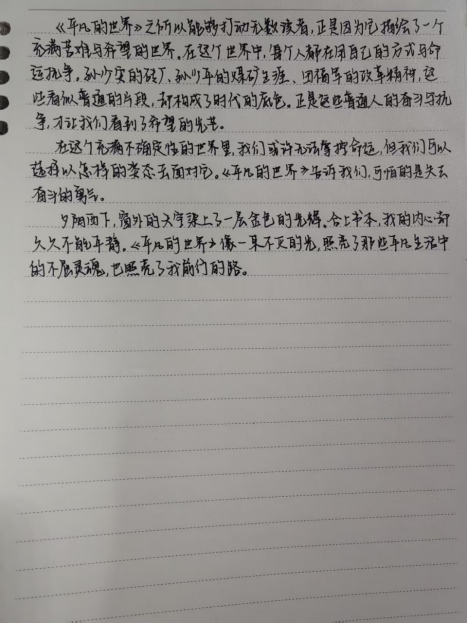 《平凡的世界》之所以能够打动无数读者,正是因为它描绘了一个
充满苦难与希望的世界。在这个世界中,每个人都在用自己的方式与命
运抗争。孙少安的砖厂、孙少平的煤矿生涯、田福军的改革精神,这
些看似普通的片段,却构成了时代的底色。正是这些普通人的奋斗与抗
争,才让我们看到了希望的光芒。
在这个充满不确定性的世界里,我们或许无法掌控命运,但我们可以
选择以怎样的姿态去面对它。《平凡的世界》告诉我们,可怕的是失去
奋斗的勇气。
夕阳西下,窗外的天宇染上了一层金色的光辉。合上书本,我的内心却
久久不能平静。《平凡的世界》像一束不灭的光,照亮了那些平凡生活中
的不屈灵魂,也照亮了我前行的路。